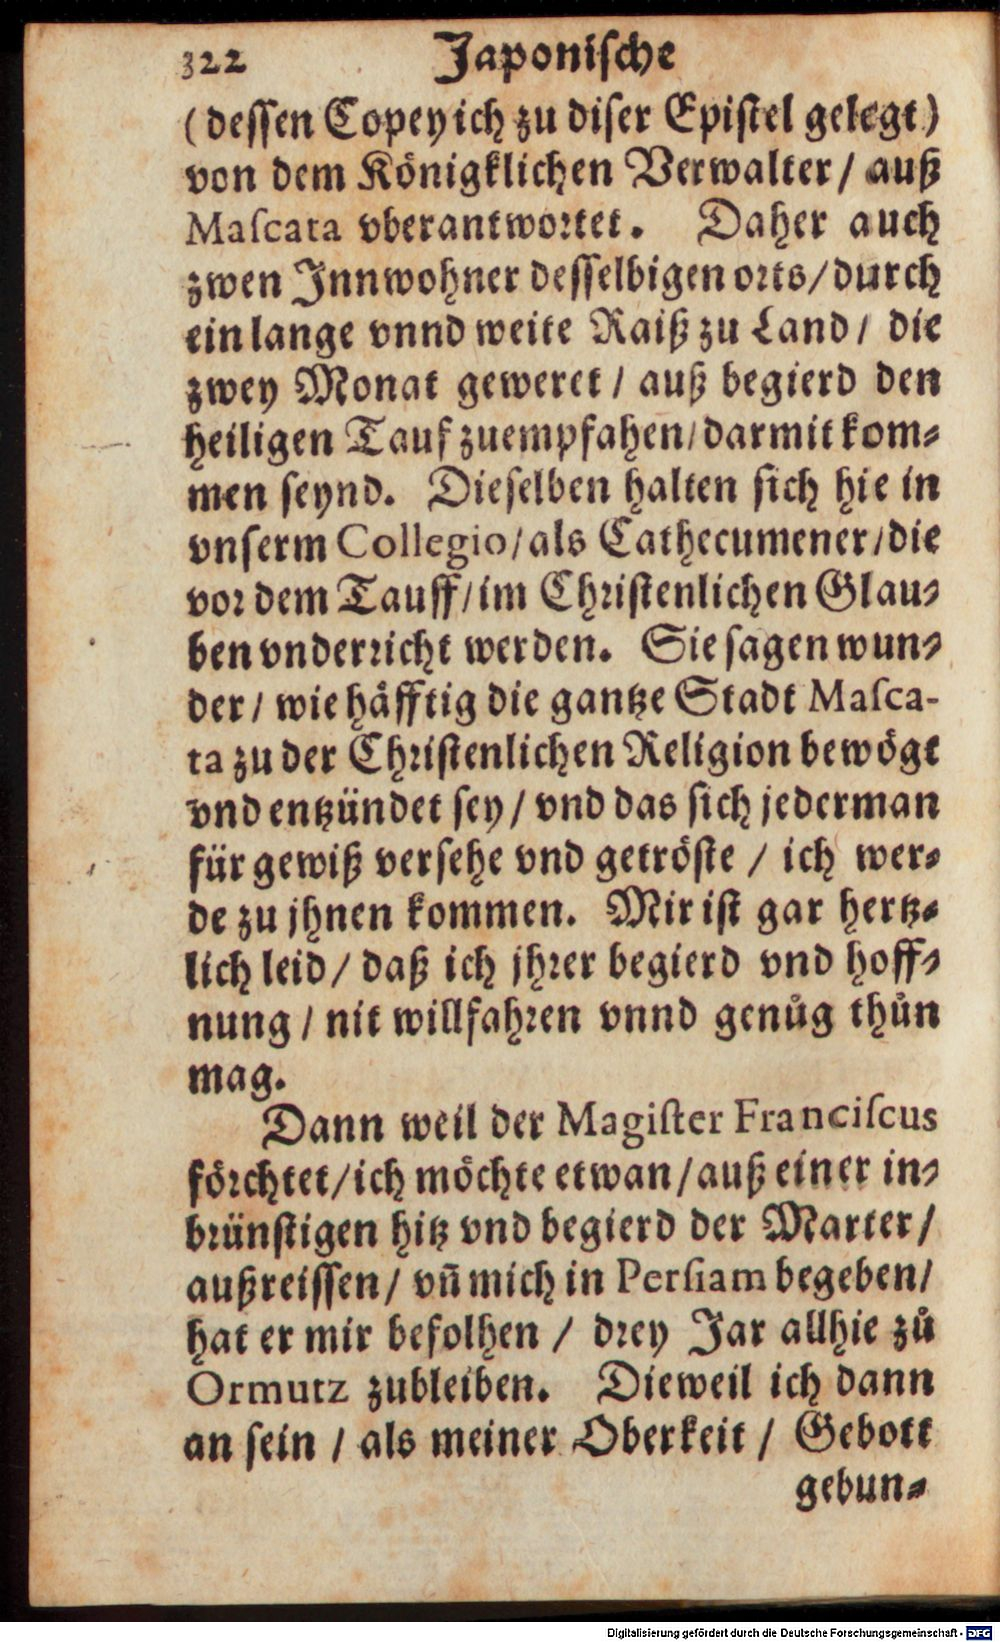 322 Japonische
(dessen Copey ich zu diser Epistel gelegt)
von dem Königklichen Verwalter / auß
Maſcata vberantwortet. Daher auch
zwen Innwohner desselbigen orts / durch
ein lange vnnd weite Raiß zu Land / die
zwey Monat geweret / auß begierd den
heiligen Tauf zuempfahen / darmit kom-
men seynd. Dieselben halten sich hie in
vnserm Collegio / als Cathecumener / die
vor dem Tauff / im Christenlichen Glau-
ben vnderricht werden. Sie sagen wun-
der / wie häfftig die gantze Stadt Maſca-
ta zu der Christenlichen Religion bewögt
vnd entzündet sey / vnd das sich jederman
für gewiß versehe vnd getröste / ich wer-
de zu jhnen kommen. Mir ist gar hertz-
lich leid / daß ich jhrer begierd vnd hoff-
nung / nit willfahren vnnd genůg thůn
mag.
Dann weil der Magiſter Franciſcus
förchtet / ich möchte etwan / auß einer in-
brünstigen hitz vnd begierd der Marter /
außreissen / vñ mich in Persiam begeben /
hat er mir befolhen / drey Jar allhie zů
Ormutz zubleiben. Dieweil ich dann
an sein / als meiner Oberkeit / Gebott
gebun-
Digitalisierung gefördert durch die Deutsche Forschungsgemeinschaft - DFG